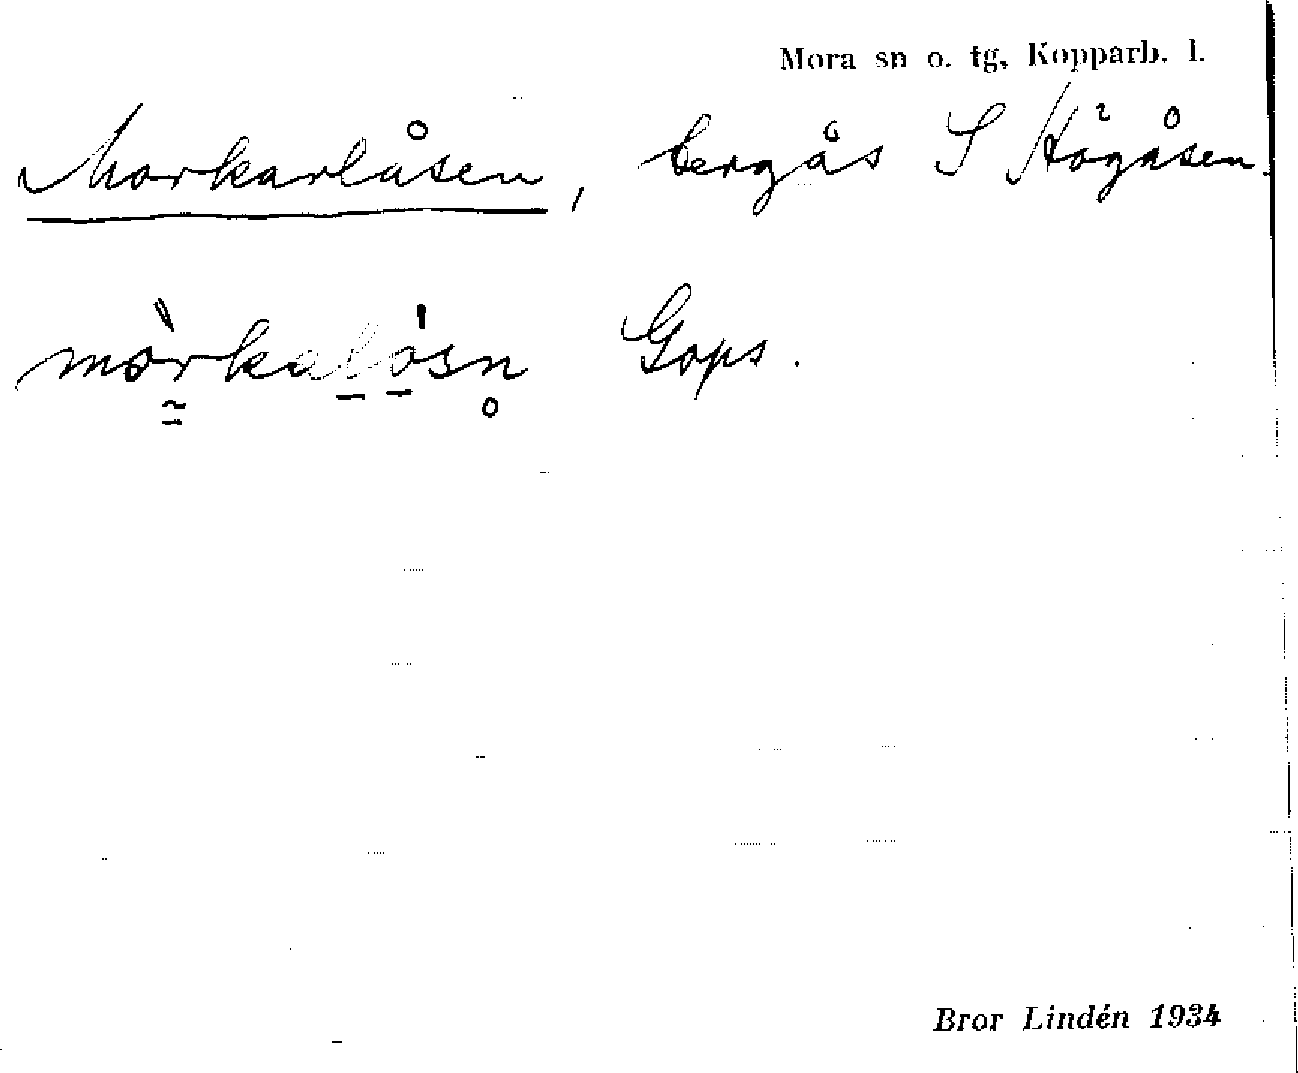 Mora sn o. tg, Kopparb. l.
Morkarlåsen, bergås S Högåsen.
mòrkalósn Gops.
Bror Lindén 1934